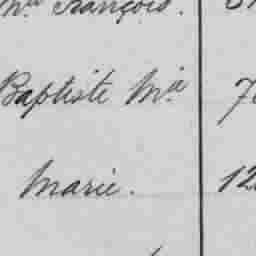 François.
Baptiste Mie
Marie. 12